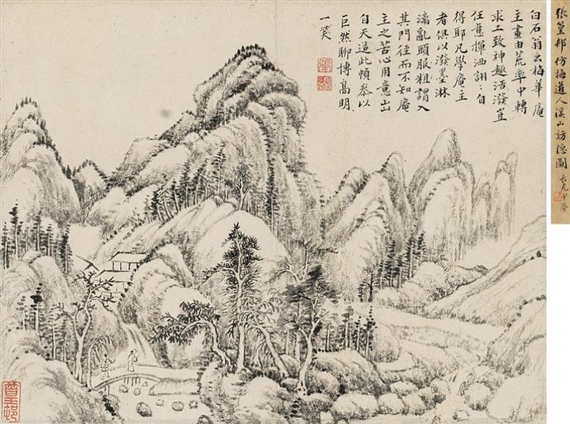 白石翁云梅華庵
主畫由荒率中轉
求工致神趣活潑豈
任意揮洒詡〻自
得耶凡學庵主
者俱以潑墨淋
漓亂頭服粗謂入
其門徑而不知庵
主之苦心用意出
自天造此幀参以
巨然聊博髙明
一笑
張篁邨仿梅道人溪山訪隱圖